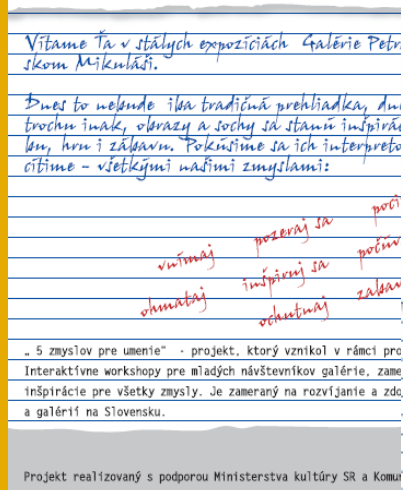 Vítame Ťa v stálych expozíciách Galérie Petr
skom Mikuláši.
Dnes to nebude iba tradičná prehliadka, dn
trochu inak, obrazy a sochy sa stanú inšpirác
bu, hru i zábavu. Pokúsime sa ich interpreto
cítime - všetkými našimi zmyslami:
vnímaj pozeraj sa počú
ohmataj inšpiruj sa počúv
ochutnaj zabav
„ 5 zmyslov pre umenie" - projekt, ktorý vznikol v rámci pro
Interaktívne workshopy pre mladých návštevníkov galérie, zame
inšpirácie pre všetky zmysly. Je zameraný na rozvíjanie a zdo
a galérií na Slovensku.
Projekt realizovaný s podporou Ministerstva kultúry SR a Komu